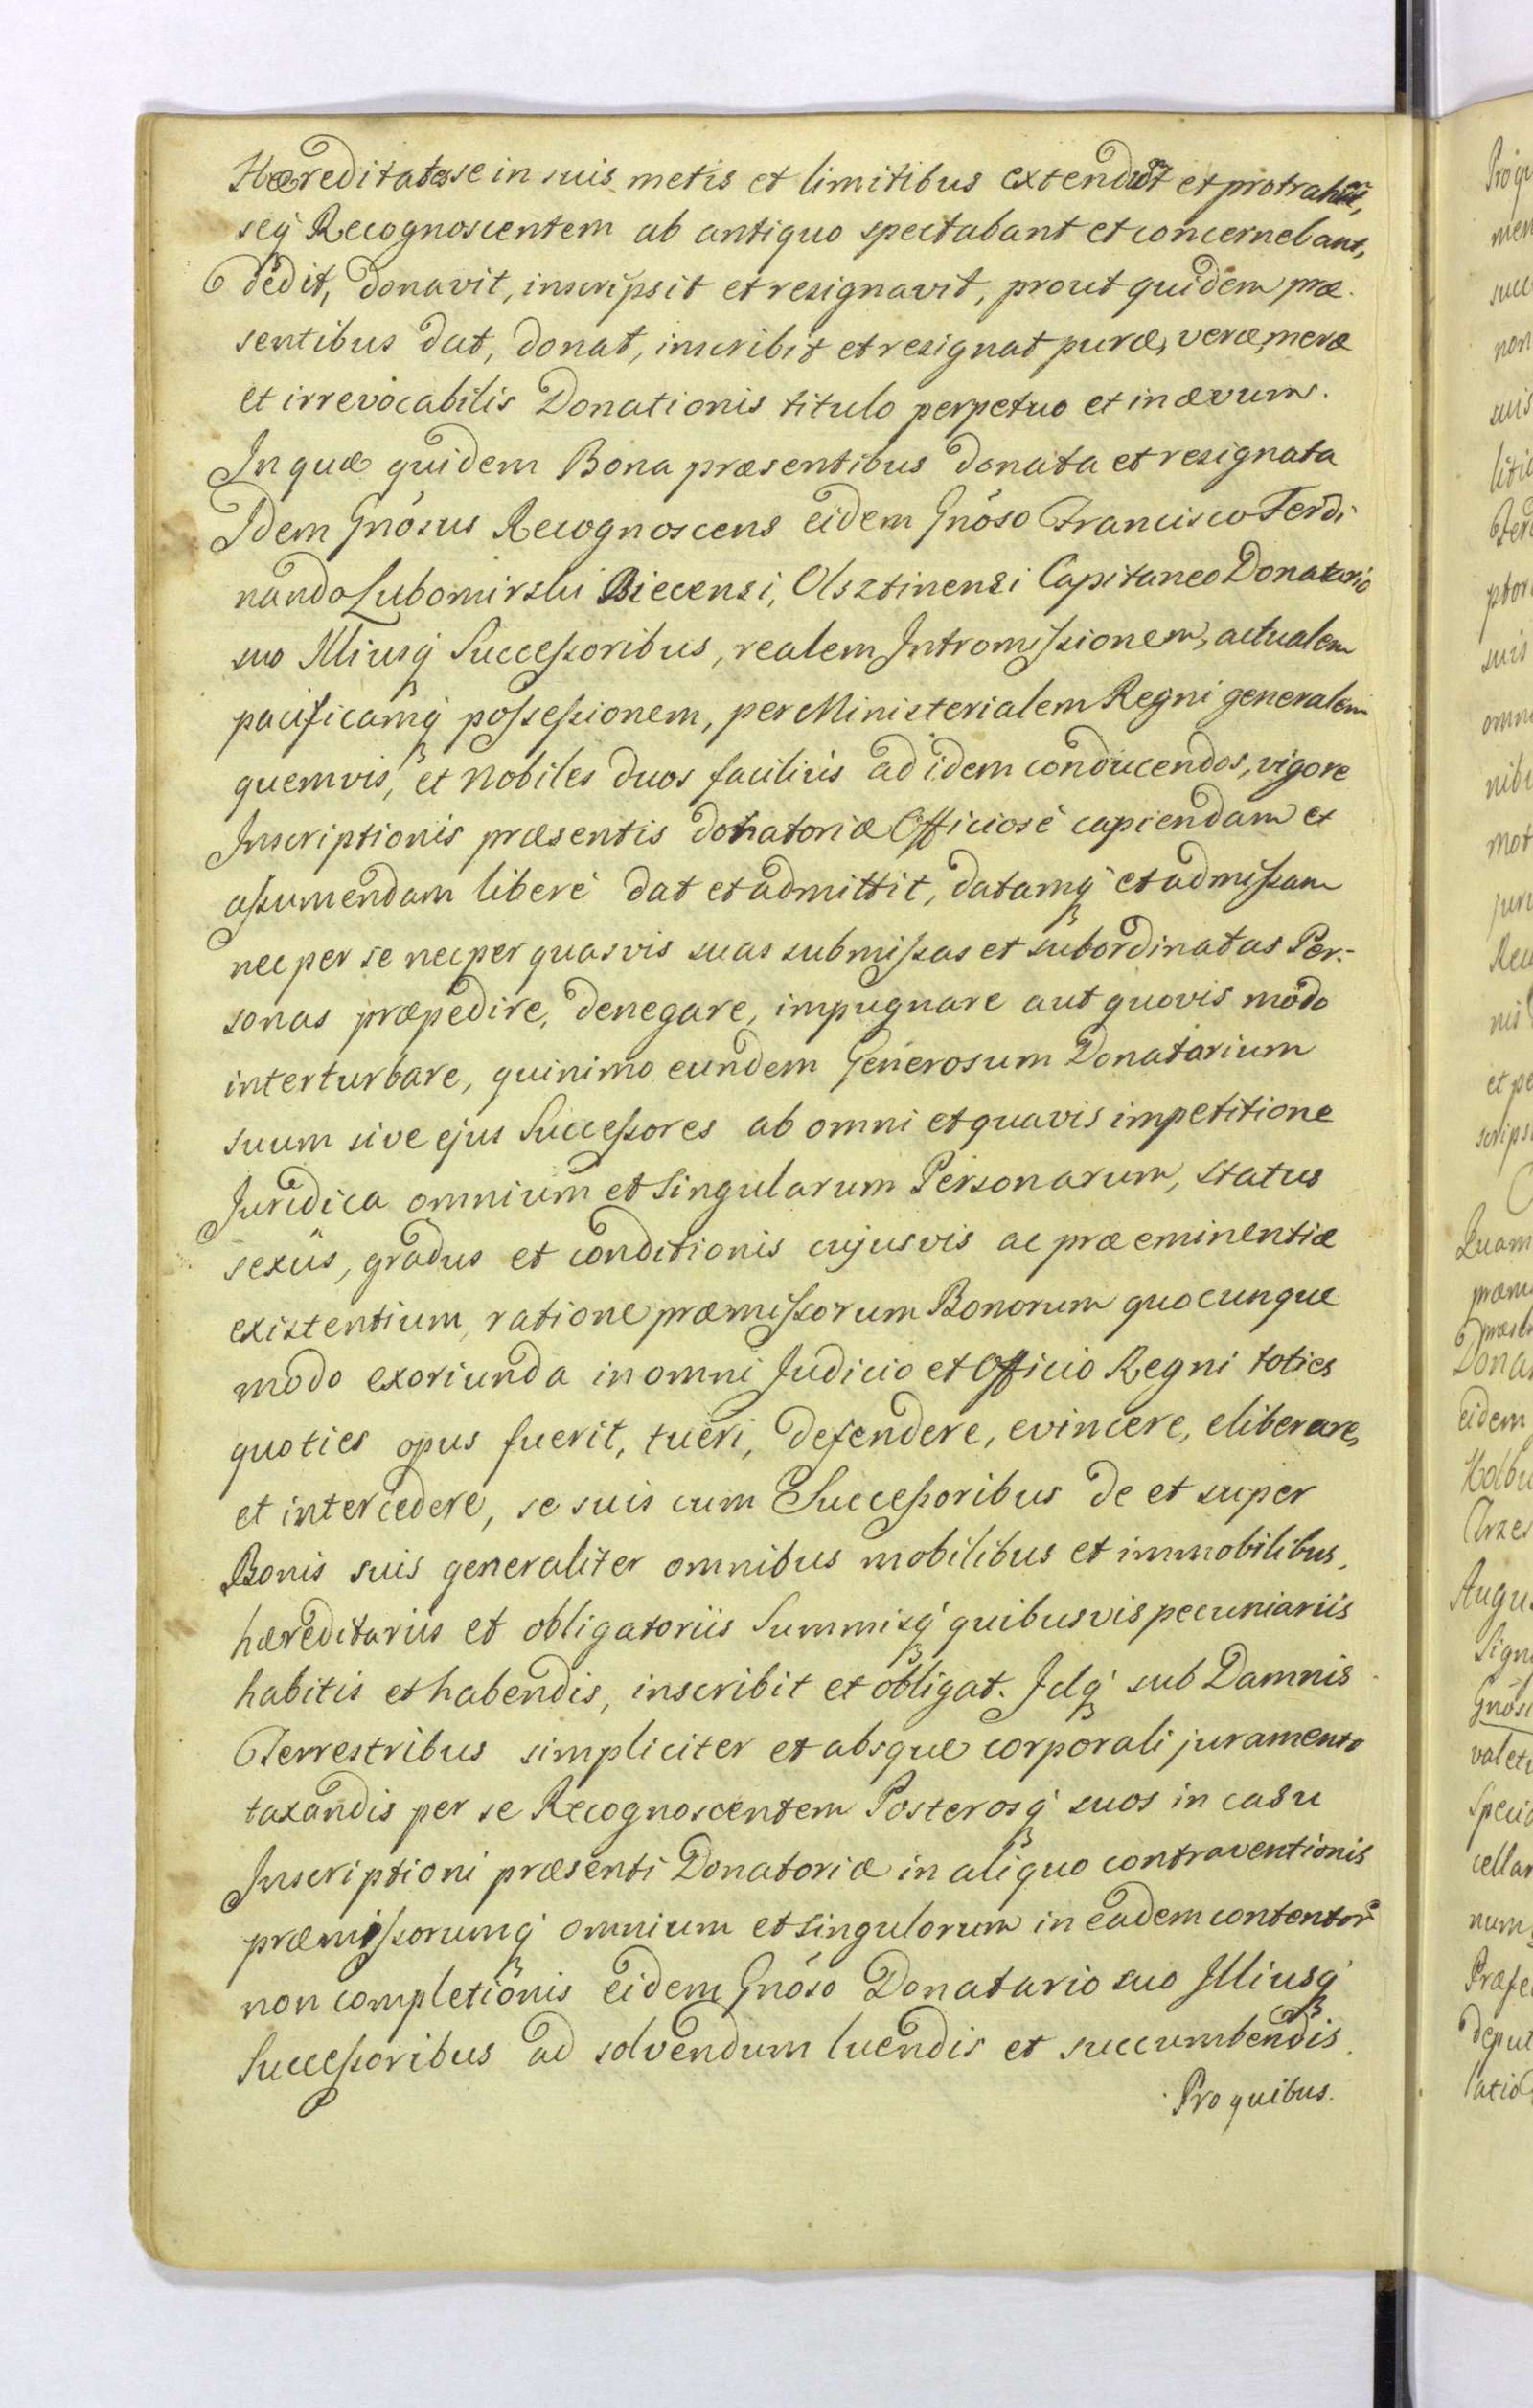 Hæreditates se in suis metis et limitibus extendūt et protrahūt,
seq́ Recognoscentem ab antiquo spectabant et concernebant,
dedit, donavit, inscripsit et resignavit, prout quidem præ-
sentibus dat, donat, inscribit et resignat puræ, veræ, meræ
et irrevocabilis Donationis titulo perpetuo et in ævum.
In quæ quidem Bona præsentibus donata et resignata
Idem Gnösus Recognoscens eidem Gnöso Francisco Ferdi
nando Lubomirski Biecensi, Olsztinensi Capitaneo Donatario
suo Illiusq́ Successoribus, realem Intromissionem, actualem
pacificamq́ possessionem, per Ministerialem Regni generalem
quemvis, et Nobiles duos facilius ad idem conducendos, vigore
Inscriptionis præsentis donatoriæ Officiosé capiendam et
assumendam liberé dat et admittit, datamq́ et admissam
nec per se nec per quasvis suas submissas et subordinatas Per-
sonas præpedire, denegare, impugnare aut quovis modo
interturbare, quinimo eundem Generosum Donatarium
suum sive ejus Successores ab omni et quavis impetitione
Juridica omnium et Singularum Personarum, status
sexûs, gradus et conditionis cujusvis ac præeminentiæ
existentium, ratione præmissorum Bonorum quocunque
modo exoriunda in omni Judicio et Officio Regni toties
quoties opus fuerit, tueri, defendere, evincere, eliberare,
et intercedere, se suis cum Successoribus de et super
Bonis suis generaliter omnibus mobilibus et immobilibus,
hæreditariis et obligatoriis Summisq́ quibusvis pecuniariis
habitis et habendis, inscribit et obligat. Idq́ sub Damnis
Terrestribus simpliciter et absque corporali juramento
taxandis per se Recognoscentem Posterosq́ suos in casu
Inscriptioni præsenti Donatoriæ in aliquo contraventionis
præmissorumq́ omnium et Singulorum in eadem contentor̃
non completionis eidem Gnöso Donatario suo Illiusq́
Successoribus ad solvendum luendis et succumbendis.
Pro quibus.